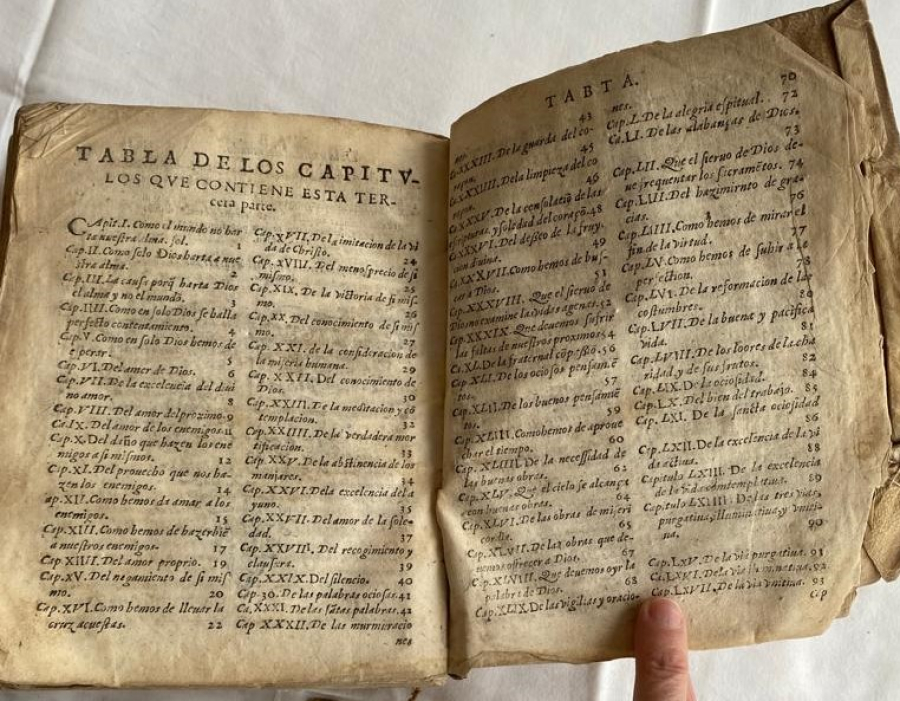 TABLA DE LOS CAPITV-
LOS QVE CONTIENE ESTA TER-
cera parte.
CApit. I. Como el mundo no har
ta nuestra alma. fol. 1
Cap. II. Como solo Dios harta a nue
stra alma. 2
Cap. III. La causa porq̃ harta Dios
el alma y no el mundo. 3
Cap. IIII. Como en solo Dios se halla
perfecto contentamiento. 4
Cap. V. Como en solo Dios hemos de
esperar. 5
Cap. VI. Del amer de Dios. 6
Cap. VII. De la excelencia del diui
no amor. 8
Cap. VIII. Del amor del proximo. 9
Ca. IX. Del amor de los enemigos. 11
Cap. X. Del daño que hazen los ene
migos a si mismos. 12
Cap. XI. Del prouecho que nos ha-
zen los enemigos. 14
ap. XII. Como hemos de amar a los
enemigos. 15
Cap. XIII. Como hemos de hazer biẽ
a nuestros enemigos. 17
Cap. XIIII. Del amor proprio. 19
Cap. XV. Del negamiento de si mis
mo. 20
Cap. XVI. Como hemos de lleuar la
cruz acuestas. 22
Cap. XVII. De la imitacion de la vi
da de Christo. 24
Cap. XVIII. Del menosprecio de si
mismo. 25
Cap. XIX. De la victoria de si mis-
mo. 26
Cap. XX. Del conocimiento de si mis
mo. 27
Cap. XXI. de la consideracion de
la miseria humana. 29
Cap. XXII. Del conocimiento de
Dios.
Cap. XXIII. De la meditacion y cõ
templacion. 32
Cap. XXIIII. De la verdadera mor
tificacion. 33
Cap. XXV. De la abstinencia de los
manjares. 34
Cap. XXVI. Dela excelencia del a
yuno. 35
Cap. XXVII. Del amor de la sole-
dad. 37
Cap. XXVIII. Del recogimiento y
clausura. 39
Cap. XXIX. Del silencio. 40
Cap. 30. De las palabras ociosas. 41
Ca. XXXI. De las sãtas palabras. 42
Cap XXXII. De las murmuracio
nes
TABTA.
nes. 43
XXXIII. De la guarda del co-
raçon. 45
XXXIIII. Dela limpieza del co
raçon. 46
XXXV. De la consolatiõ de las
escripturas, y soledad del coraçõ. 48
XXXVI. Del desseo de la fruy
cion diuina. 49
XXXVII. Como hemos de bus-
car a Dios. 51
Cap. XXXVIII. Que el sieruo de
Dios no examine las vidas agenas. 52
Cap. XXXIX. Que deuemos sufrir
las faltas de nuestros proximos 54
Ca. XL. De la fraternal cõpassiõ. 56
Cap. XLI. De los ociosos pensamiẽ
tos. 57
Cap. XLII. De los buenos pensamiẽ
tos. 59
Cap. XLIII. Como hemos de aproue
char el tiempo. 60
Cap. XLIIII. De la necessidad de
las buenas obras. 62
Cap. XLV. Que el cielo se alcança
con buenas obras. 64
Cap. XLVI. De las obras de miseri
cordia. 65
Cap. XLVII. De las obras que de-
uemos offrecer a Dios. 67
Cap. XLVIII. Que deuemos oyr la
palabra de Dios. 68
Cap. XLIX. De las vigilias y oracio-
nes. 70
Cap. L. De la alegria espitual. 72
Ca. LI. De las alabanças de Dios.
73
Cap. LII. Que el sieruo de Dios de-
ue frequentar los sacramẽtos. 74
Cap. LIII. Del hazimiẽto de gra-
cias. 76
Cap. LIIII. Como hemos de mirar el
fin de la virtud. 77
Cap. LV. Como hemos de subir a la
perfection. 78
Cap. LVI. De la reformacion de las
costumbres. 80
Cap. LVII. De la buena y pacifica
vida. 81
Cap. LVIII. De los loores de la cha
ridad, y de sus frutos. 82
Cap. LIX. De la ociosidad. 84
Cap. LX. Del bien del trabajo. 85
Cap. LXI. De la sancta ociosidad
86
Cap. LXII. De la excelencia de la vi
da actiua. 88
Capitulo LXIII. De la excelencia
de la vida contemplatiua. 89
Capitulo LXIIII. De las tres vias,
purgatiua, illuminatiua, y vniti-
ua. 90
Cap. LXV. De la via purgatiua. 91
Ca. LXVI. De la via illuminatiua. 92
Cap. LXVII. De la via vnitiua. 93
Cap